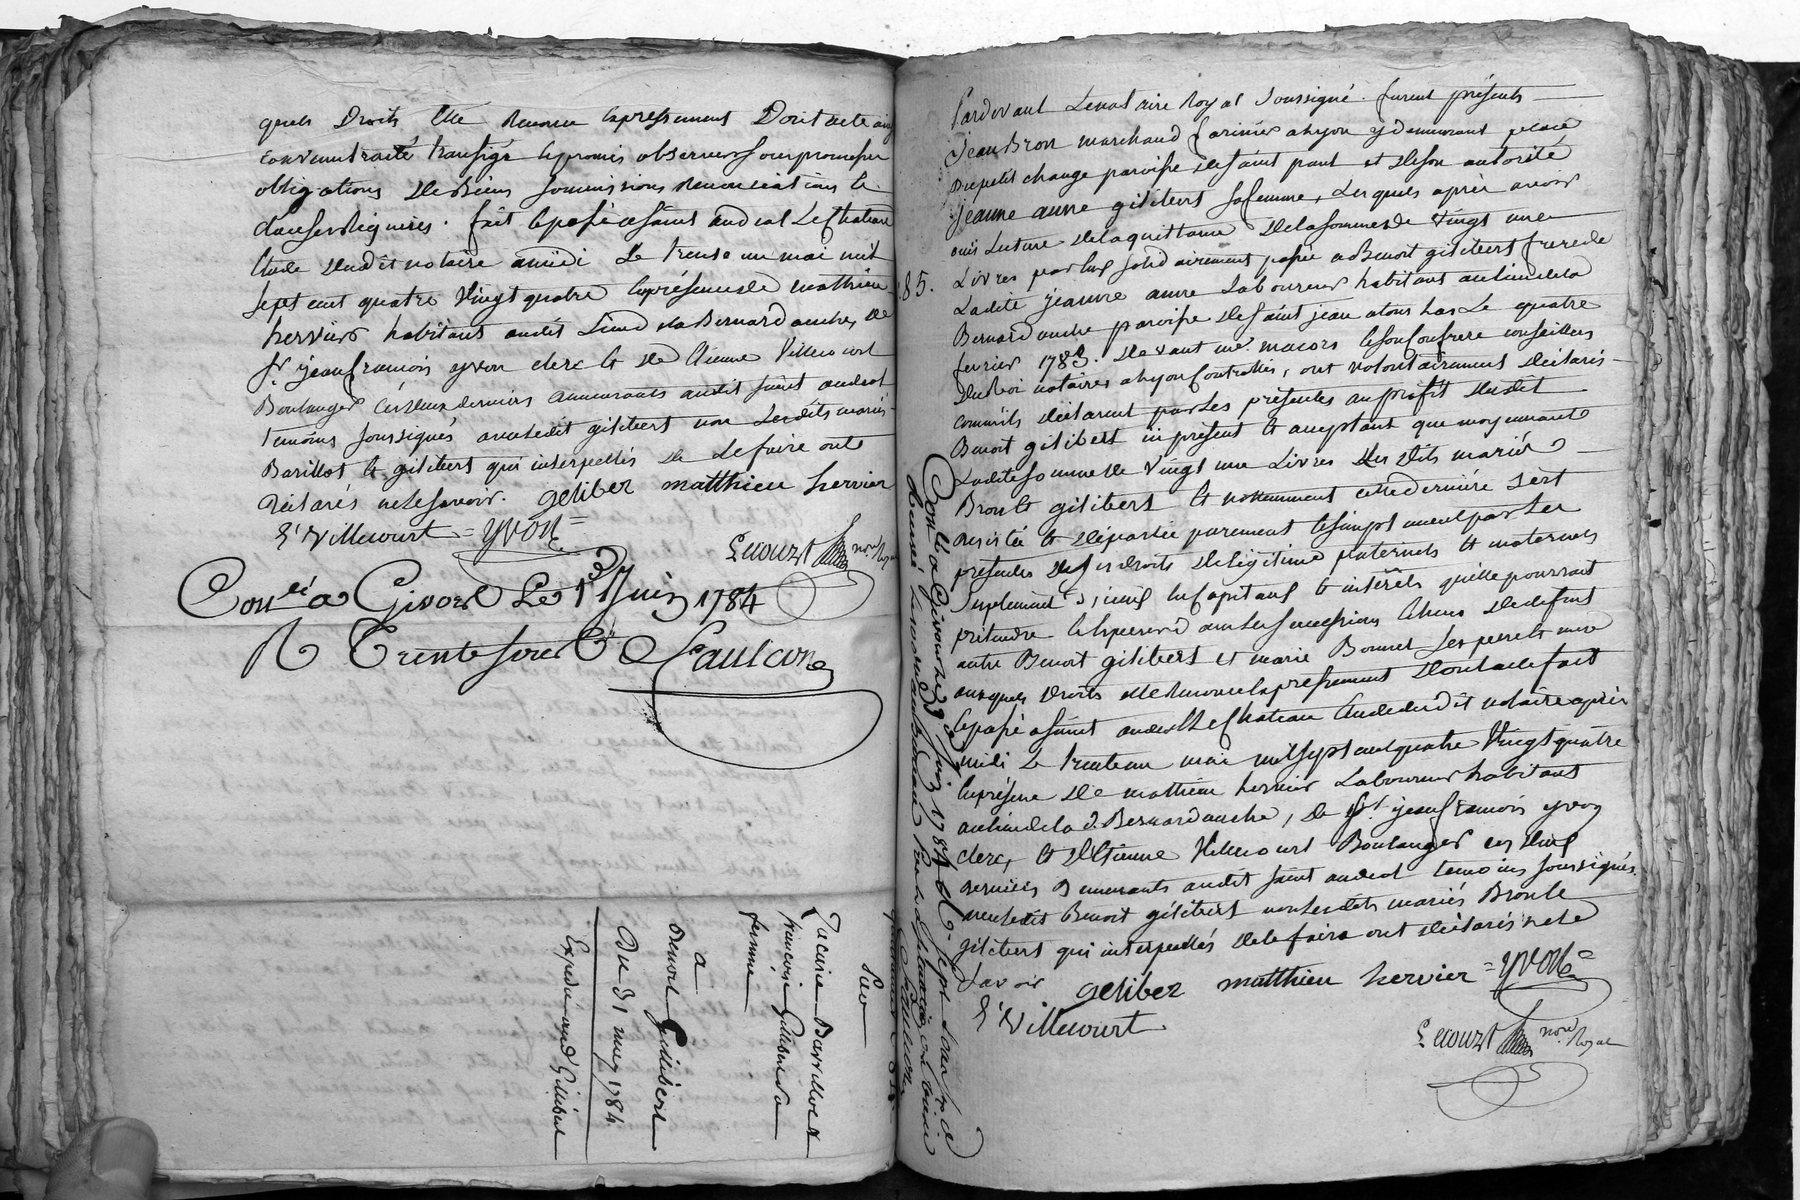 quels Droits Elle Renonce Expressement Dont acte ainsy
convenu traité transigé Et promis observer sous promesses
obligations de Biens soumissions Renonciations Et
clauses Requises. fait Et passé a saint andeol Le Chateau
Etude dudit notaire a midi Le trente un mai mil
sept cent quatre vingt quatre En présence de matthieu
hervier habitant audit Lieu de la Bernardanche, de
sr. jean françois yvon clerc Et de Etienne Villecourt
Boulanger Ces deux derniers demeurants audit saint andeol
temoins soussignés avec ledit gilibert non Lesdits mariés
Barillot, Et gilibert qui interpellés de Le faire ont
déclarés ne le savoir. geliber matthieu hervier
E' Villecourt = yvon =
Lecourt nore Royal
Conlé a Givors Le 13 Juin 1784
R Trente sous Faulcon
Pac
Jacaire Barrillot et
françoise Gilibert sa
femme
a
Benoit Gillibert
Du 31 may 1784
Expedié aud Gilibert
Pardevant Le notaire Royal soussigné. furent présents
Jean Bron marchand farinier a lyon y demeurant place
Du petit change paroisse de saint paul et de son autorité
jeanne anne gilibert sa femme, Lesquels après avoir
ouis Lecture de la quittance de la somme de vingt une
85. Livres par Eux solidairement passée a Benoit gilibert frere de
Ladite jeanne anne Laboureur habitant au lieu de la
Bernardanche paroisse de saint jean a touslas Le quatre
fevrier 1783. devant me. macors Et son confrere conseillers
du Roi notaires a lyon Controllée, ont volontairement déclarés
comm'ils déclarent par Les présentes au profit dudit
Benoit gilibert ici présent Et acceptant que moyennant
Ladite somme de vingt une Livres Lesdits mariés
Bron Et gilibert Et nottamment cette derniére s'est
desistée Et départie purement Et simplement par Les
présentes de ses droits de Légitime paternels Et maternels
suplement d'iceux Les Capitaux Et intérêts qu'elle pourroit
prétendre Et Esperer dans Les successions Echues de defunt
autre Benoit gilibert Et marie Bonnet Ses pere Et mere
auxquels droits elle Renonce Expressement Dont acte fait
Et passé a saint andeol Le Chateau Etude dudit notaire après
midi Le trente un mai mil sept cent quatre vingt quatre
En présence de matthieu hervier Laboureur habitant
au lieu de la d. Bernardanche, de sr. jean françois yvon
clerc, Et d'Etienne Villecourt Boulanger ces deux
derniers demeurants audit saint andeol temoins soussignés
avec ledit Benoit gilibert non Lesdits mariés Bron Et
gilibert qui interpellés de le faire ont déclarés ne le
savoir geliber matthieu hervier = yvon =
E' Villecourt
Lecourt nore Royal
Conlé a Givors Le 13 Juin 1784